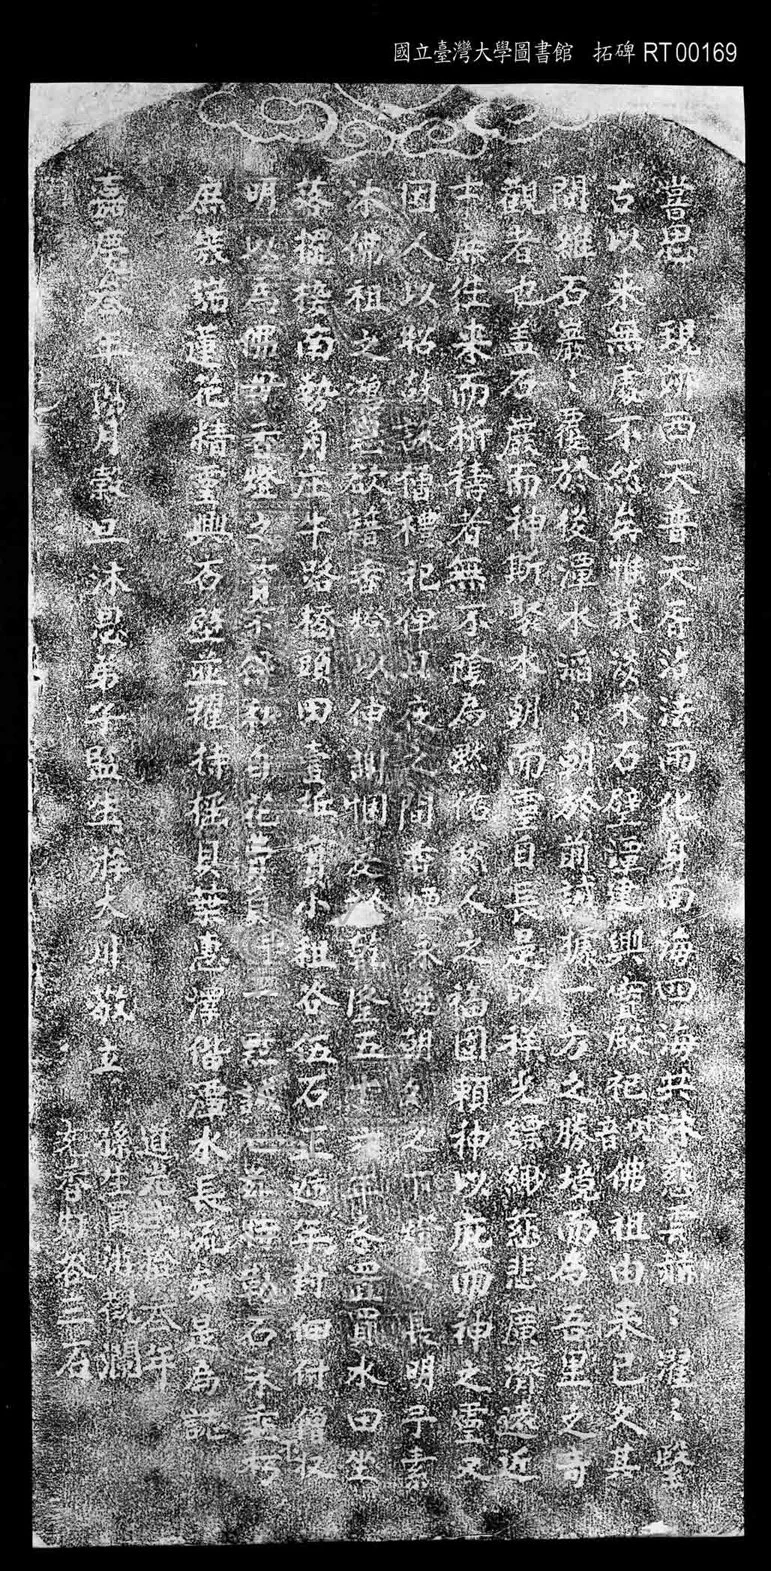 國立臺灣大學圖書館 拓碑 RT00169
嘗思 現跡西天普天居沾法雨化身南海四海共沐慈雲赫〻濯〻緊
古以來無處不然矣惟我淡水石壁潭建興寶殿祀觀音佛祖由來已久其
間維石巖〻覆於後潭水滔〻朝於前誠據一方之勝境而為吾里之奇
觀者也盖石巖而神斯聚水朝而靈自長是以祥光縹緲慈悲廣濟遠近
士庶往來而祈禱者無不蔭為默佑然人之福固賴神以庇而神之靈又
因人以昭故設僧禮祀俾日夜之間香煙永繞朝夕之下燈火長明予素
沐佛祖之鴻恩欲藉香燈以伸謝悃爰於乾隆五十六年备置買水田坐
落擺接南勢角庄牛路橋頭田壹坵實小租谷伍石正遞年對佃付僧收
明以為佛母香燈之資不敢私自花費自注一點誠心並垂諸石永垂朽
庶幾瑞蓮花精靈興石壁並耀持握貝葉惠澤偕潭水長流矣是為誌
嘉慶叁年陽月穀旦沐恩弟子監生游大川敬立
道光貳拾叁年
孫生員游觀瀾
充香灯谷三石